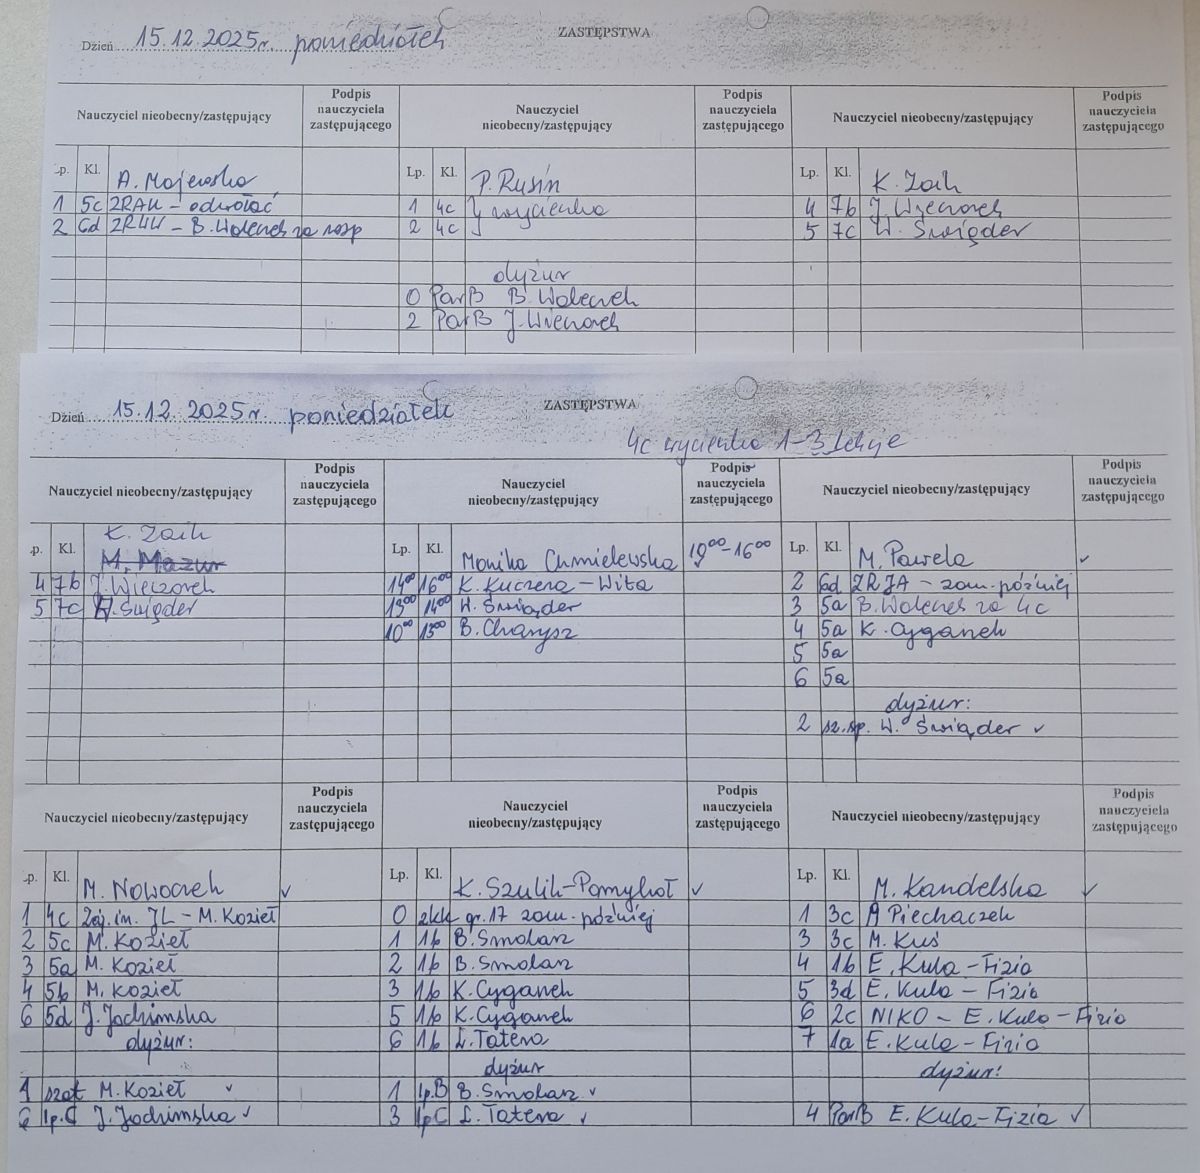 ZASTĘPSTWA
Dzień 15.12.2025r. poniedziałek
Nauczyciel nieobecny/zastępujący
Podpis nauczyciela zastępującego
Nauczyciel nieobecny/zastępujący
Podpis nauczyciela zastępującego
Nauczyciel nieobecny/zastępujący
Podpis nauczyciela zastępującego
Lp. Kl. A. Majewska
1 5c ZRAK - odwołać
2 6d - B. Wolenek za rozp
Lp. Kl. P. Rusin
1 4c } wycieczka
2 4c
dyżur
0 ParB B. Wolenek
2 ParB J. Wieczorek
Lp. Kl. K. Zaik
4 7b J. Wieczorek
5 7c W. Świąder
ZASTĘPSTWA
Dzień 15.12.2025r. poniedziałek
4c wycieczka 1-3 lekcje
Nauczyciel nieobecny/zastępujący
Podpis nauczyciela zastępującego
Nauczyciel nieobecny/zastępujący
Podpis nauczyciela zastępującego
Nauczyciel nieobecny/zastępujący
Podpis nauczyciela zastępującego
K. Zaik
Lp. Kl. M. Mazur
4 7b J. Wieczorek
5 7c W. Świąder
Lp. Kl. Monika Chmielewska 10⁰⁰-16⁰⁰
14⁰⁰ 16⁰⁰ K. Kuczera - Wita
13⁰⁰ 14⁰⁰ W. Świąder
10⁰⁰ 13⁰⁰ B. Charysz
Lp. Kl. M. Pawela ✓
2 6d ZRJA - zam. później
3 5a B. Wolenek za 4c
4 5a K. Cyganek
5 5a
6 5a
dyżur:
2 sz.sp. W. Świąder ✓
Nauczyciel nieobecny/zastępujący
Podpis nauczyciela zastępującego
Nauczyciel nieobecny/zastępujący
Podpis nauczyciela zastępującego
Nauczyciel nieobecny/zastępujący
Podpis nauczyciela zastępującego
Lp. Kl. M. Nowaczek ✓
1 4c Zaj. in. JL - M. Kozieł
2 5c M. Kozieł
3 5a M. Kozieł
4 5b M. Kozieł
6 5d J. Jachimska
dyżur:
1 szat M. Kozieł ✓
6 lp.C J. Jachimska ✓
Lp. Kl. K. Szulik-Pomykoł ✓
0 zkk gr. 17 zam. później
1 1b B. Smolarz
2 1b B. Smolarz
3 1b K. Cyganek
5 1b K. Cyganek
6 1b Ł. Tatera
dyżur
1 lp.B B. Smolarz ✓
3 lpC Ł. Tatera ✓
Lp. Kl. M. Kandelska ✓
1 3c A Piechaczek
3 3c M. Kuś
4 1b E. Kula - Fizia
5 3d E. Kula - Fizia
6 2c NIKO - E. Kula - Fizia
7 1a E. Kula - Fizia
dyżur:
4 ParB E. Kula-Fizia ✓